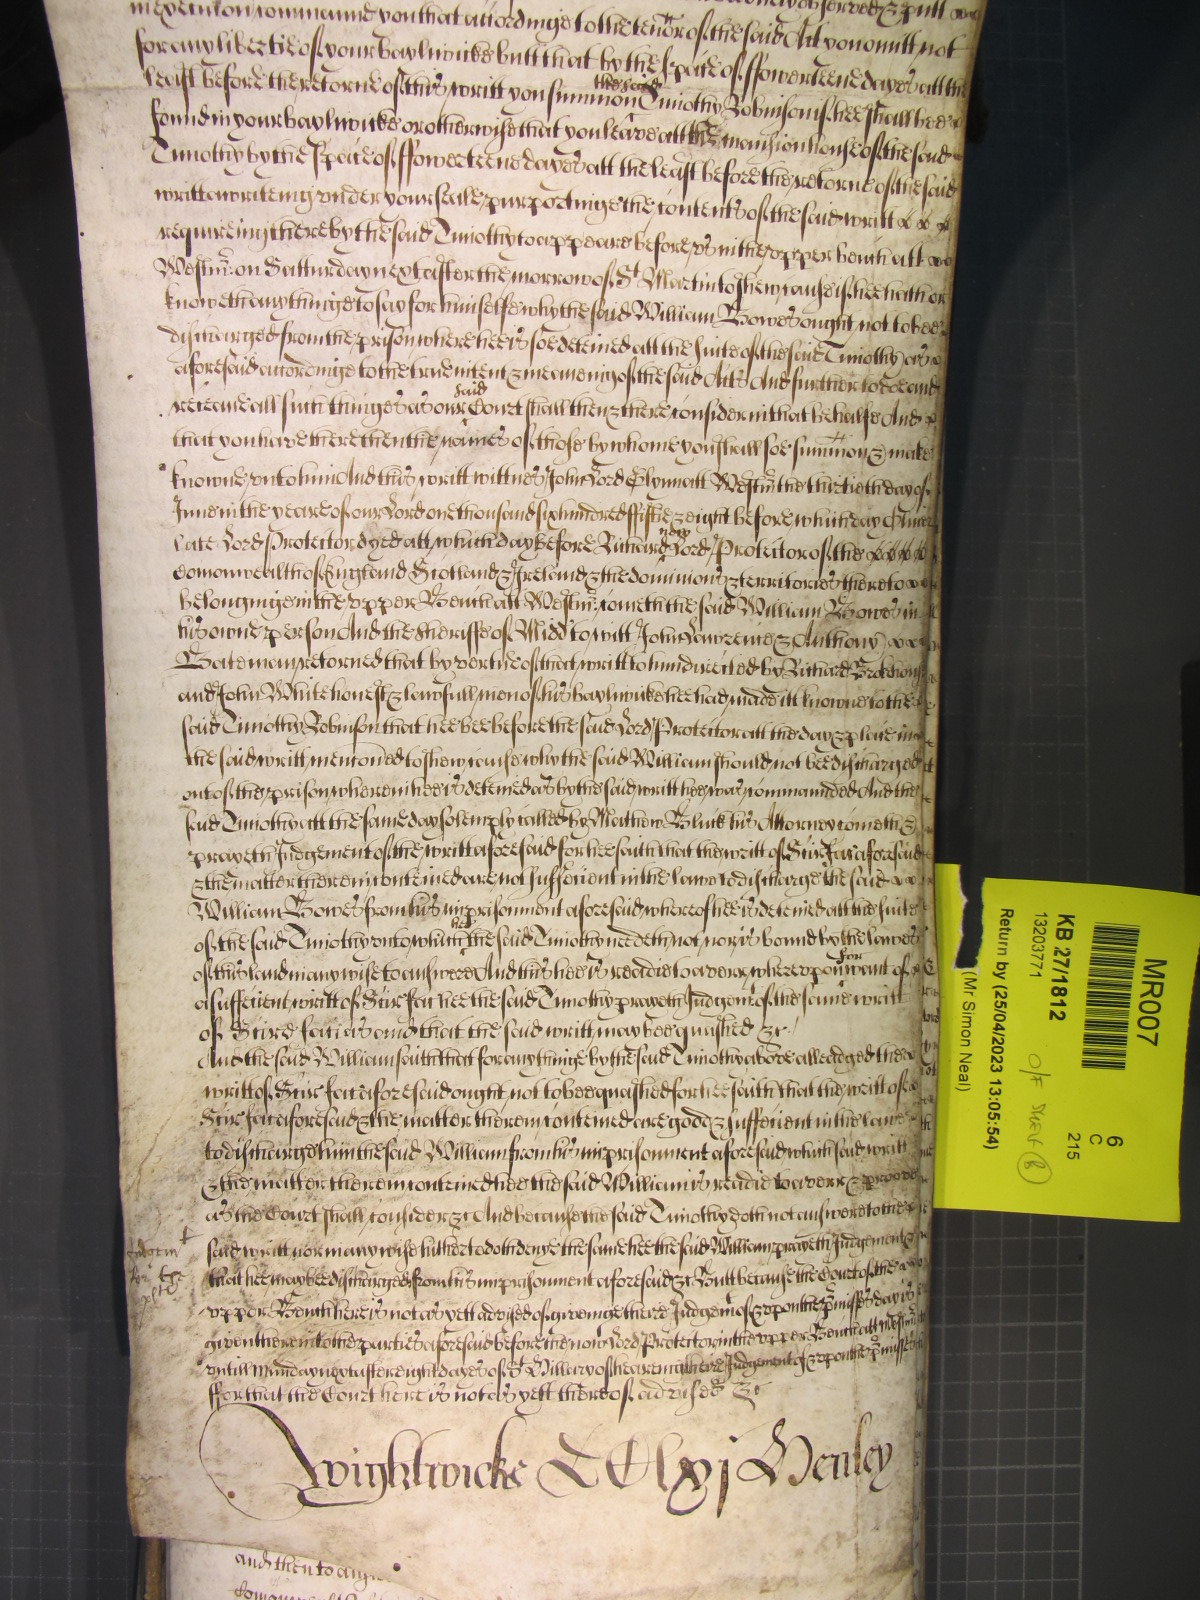 in execution commaund you that accordinge to the tenor of the said Act you omitt not
for any libertie of your baylwicke butt that by the space of ffowerteene dayes att the
least before the retorne of this writt you summon the said Timothy Robinson if hee shall bee
found in your baylwicke or otherwise that you leave att the mansion house of the said
Timothy by the space of ffowerteene dayes att the least before the retorne of the said
writt a writeing under your seale purportinge the contents of the said writt
requireing thereby the said Timothy to appeare before us in the upper bench att
Westmr. on Satturday next after the morrow of St Martin to shew cause if hee hath or
knoweth any thinge to say for himselfe why the said William Bowes ought not to bee
discharged from the prison where hee is soe deteined att the suite of the said Timothy as
aforesaid accordinge to the true intent & meaneing of the said Acts And further to doe and
receave all such thinges as our said Court shall then & there consider in that behalfe And
that you have there then the names of those by whome you shall soe summon & make
knowne unto him And this writt wittnes John Lord Glynn att Westmr the thirtieth day of
June in the yeare of our Lord one thousand six hundred fiftie & eight before which day Oliver
late Lord Protector dyed att which day before Richard now Lord Protector of the
Comonwealth of England Scotland & Ireland & the dominions & territories thereto
belonginge in the upper Bench att Westmr. cometh the said William Bowes in
his owne person And the Sheriffe of Midd to witt John Lawrence & Anthony
Bateman retorned that by vertue of that writt to him directed by Richard
and John White honest & lawfull men of his baylwicke hee had made itt knowne to the
said Timothy Robinson that hee bee before the said Lord Protector att the day & place in
the said writt mentoned to shew cause why the said William should not bee discharged
out of the prison wherein hee is deteined as by the said writt hee was commaunded And the
said Timothy att the same day solemply called by Mathew Bluck his Attorney cometh &
prayeth Judgement of the writt aforesaid for hee saith that the writt of Scire fac aforesaid
& the matter therein conteined are not sufficient in the lawe to discharge the said
William Bowes from his imprisonment aforesaid whereof hee is deteined att the suite
of the said Timothy unto which hee the said Timothy nedeth not nor is bound by the lawes
of this land in any wise to answere And this hee is readie to averr whereupon for want of
a sufficient writt of Scire fac hee the said Timothy prayeth Judgemt. of the same writt
of Scire facias and that the said writt may bee quashed &c.
And the said William saith that for any thinge by the said Timothy above alleadged the
writt of Scire fac aforesaid ought not to bee quashed for hee saith that the writt of
Scire fac aforesaid & the matter therein conteined are good & sufficient in the lawe
to discharge him the said William from his imprisonment aforesaid which said writt
& the matter therein conteined hee the said William is readie to averr & proove
as the Court shall consider &c And because the said Timothy doth not answere to the
said writt nor in any wise hitherto doth denye the same hee the said William prayeth Judgement &
that hee may bee discharged from his imprisonment aforesaid &c Butt because the Court of the
upper Bench here is not as yett advised of giveinge there Judgemt of & upon the pmisses day is
given therein to the parties aforesaid before the now Lord Protector in the upper Bench att Westmr
untill Munday next after eight dayes of St Hillary of heareing there Judgement of & upon the pmisses
ffor that the Court here is not as yett thereof advised &c
Wightwicke CClxj Henley
and then to
MR007
6
C
215
KB 27/1812
13203771
O/F Shelf B
Return by (25/04/2023 13:05:54)
(Mr Simon Neal)